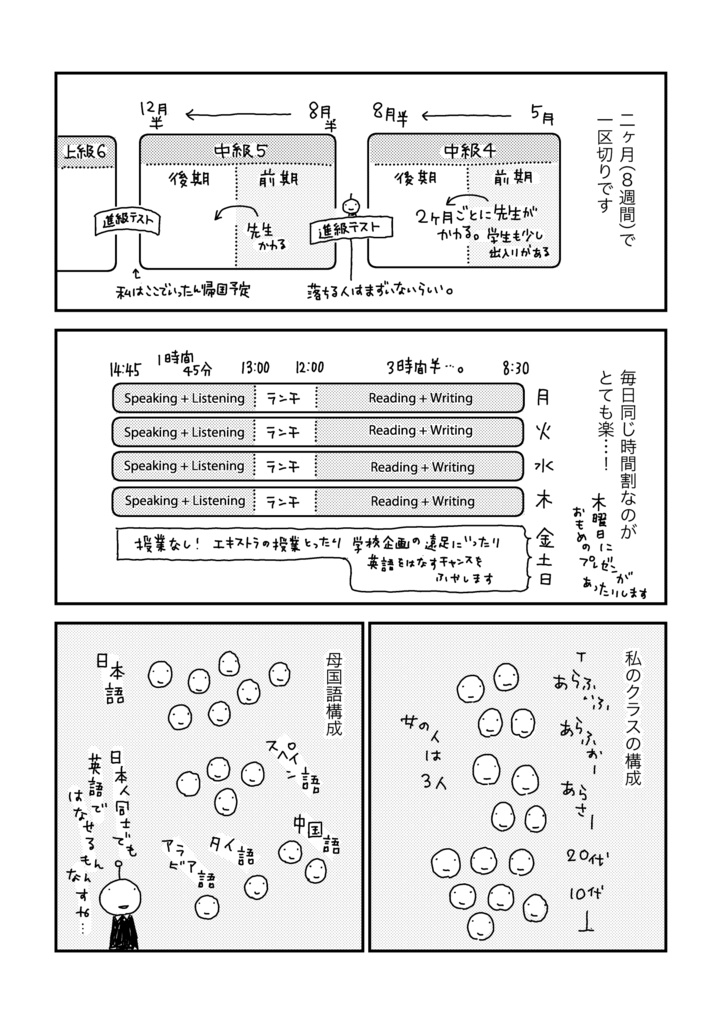 二ヶ月(8週間)で
一区切りです
5月
8月半
8月半
12月半
中級4
前期
後期
2ヶ月ごとに先生が
かわる。学生も少し
出入りがある
進級テスト
落ちる人はまずいないらしい。
中級5
前期
後期
先生
かわる
進級テスト
私はここでいったん帰国予定
上級6
毎日同じ時間割なのが
とても楽…!
木曜日に
おもめの
プレゼンが
あったりします
8:30
3時間半…。
12:00
13:00
1時間
45分
14:45
月
Reading + Writing
ランチ
Speaking + Listening
火
Reading + Writing
ランチ
Speaking + Listening
水
Reading + Writing
ランチ
Speaking + Listening
木
Reading + Writing
ランチ
Speaking + Listening
金
土
日
授業なし! エキストラの授業とったり 学校企画の遠足にいったり
英語をはなすチャンスを
ふやします
私のクラスの構成
あらふぃふ
あらふぉー
あらさー
20代
10代
女の人
は
3人
母国語構成
日本語
スペイン語
中国語
タイ語
アラビア語
日本人同士でも
英語で
はなせるもん
なんすや…